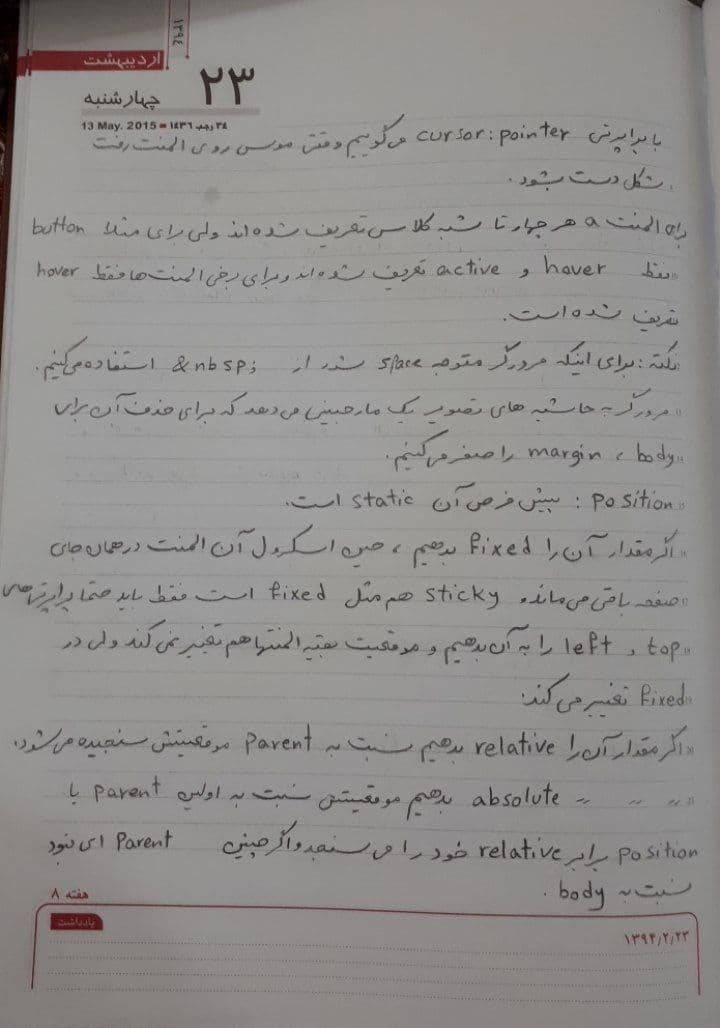 ۱۳۹۴
اردیبهشت
۲۳
چهارشنبه
13 May. 2015 ۲۴ رجب ۱۴۳۶
با پراپرتی cursor: pointer می‌گوییم وقتی موس روی المنت رفت
شکل دست بشود.
برای المنت a هر چهار تا شبه کلاس تعریف شده اند ولی برای مثلا button
فقط hover و active تعریف شده اند و برای برخی المنت ها فقط hover
تعریف شده است.
نکته: برای اینکه مرورگر متوجه space شود از &nbsp; استفاده می‌کنیم.
مرورگر به حاشیه های تصویر یک مارجینی می دهد که برای حذف آن برای
body، margin را صفر می‌کنیم.
Position: پیش فرض آن static است.
اگر مقدار آن را fixed بدهیم، حین اسکرول آن المنت در همان جای
صفحه باقی می ماند و sticky هم مثل fixed است فقط باید حتما پراپرتی های
top و left را به آن بدهیم و موقعیت بقیه المنتها هم تغییر نمی کند ولی در
fixed تغییر می کند.
اگر مقدار آن را relative بدهیم نسبت به Parent موقعیتش سنجیده می شود.
" " " " absolute بدهیم موقعیتش نسبت به اولین parent با
position برابر relative خود را می سنجد و اگر چنین Parent ای نبود
نسبت به body.
هفته ۸
یادداشت
۱۳۹۴/۲/۲۳